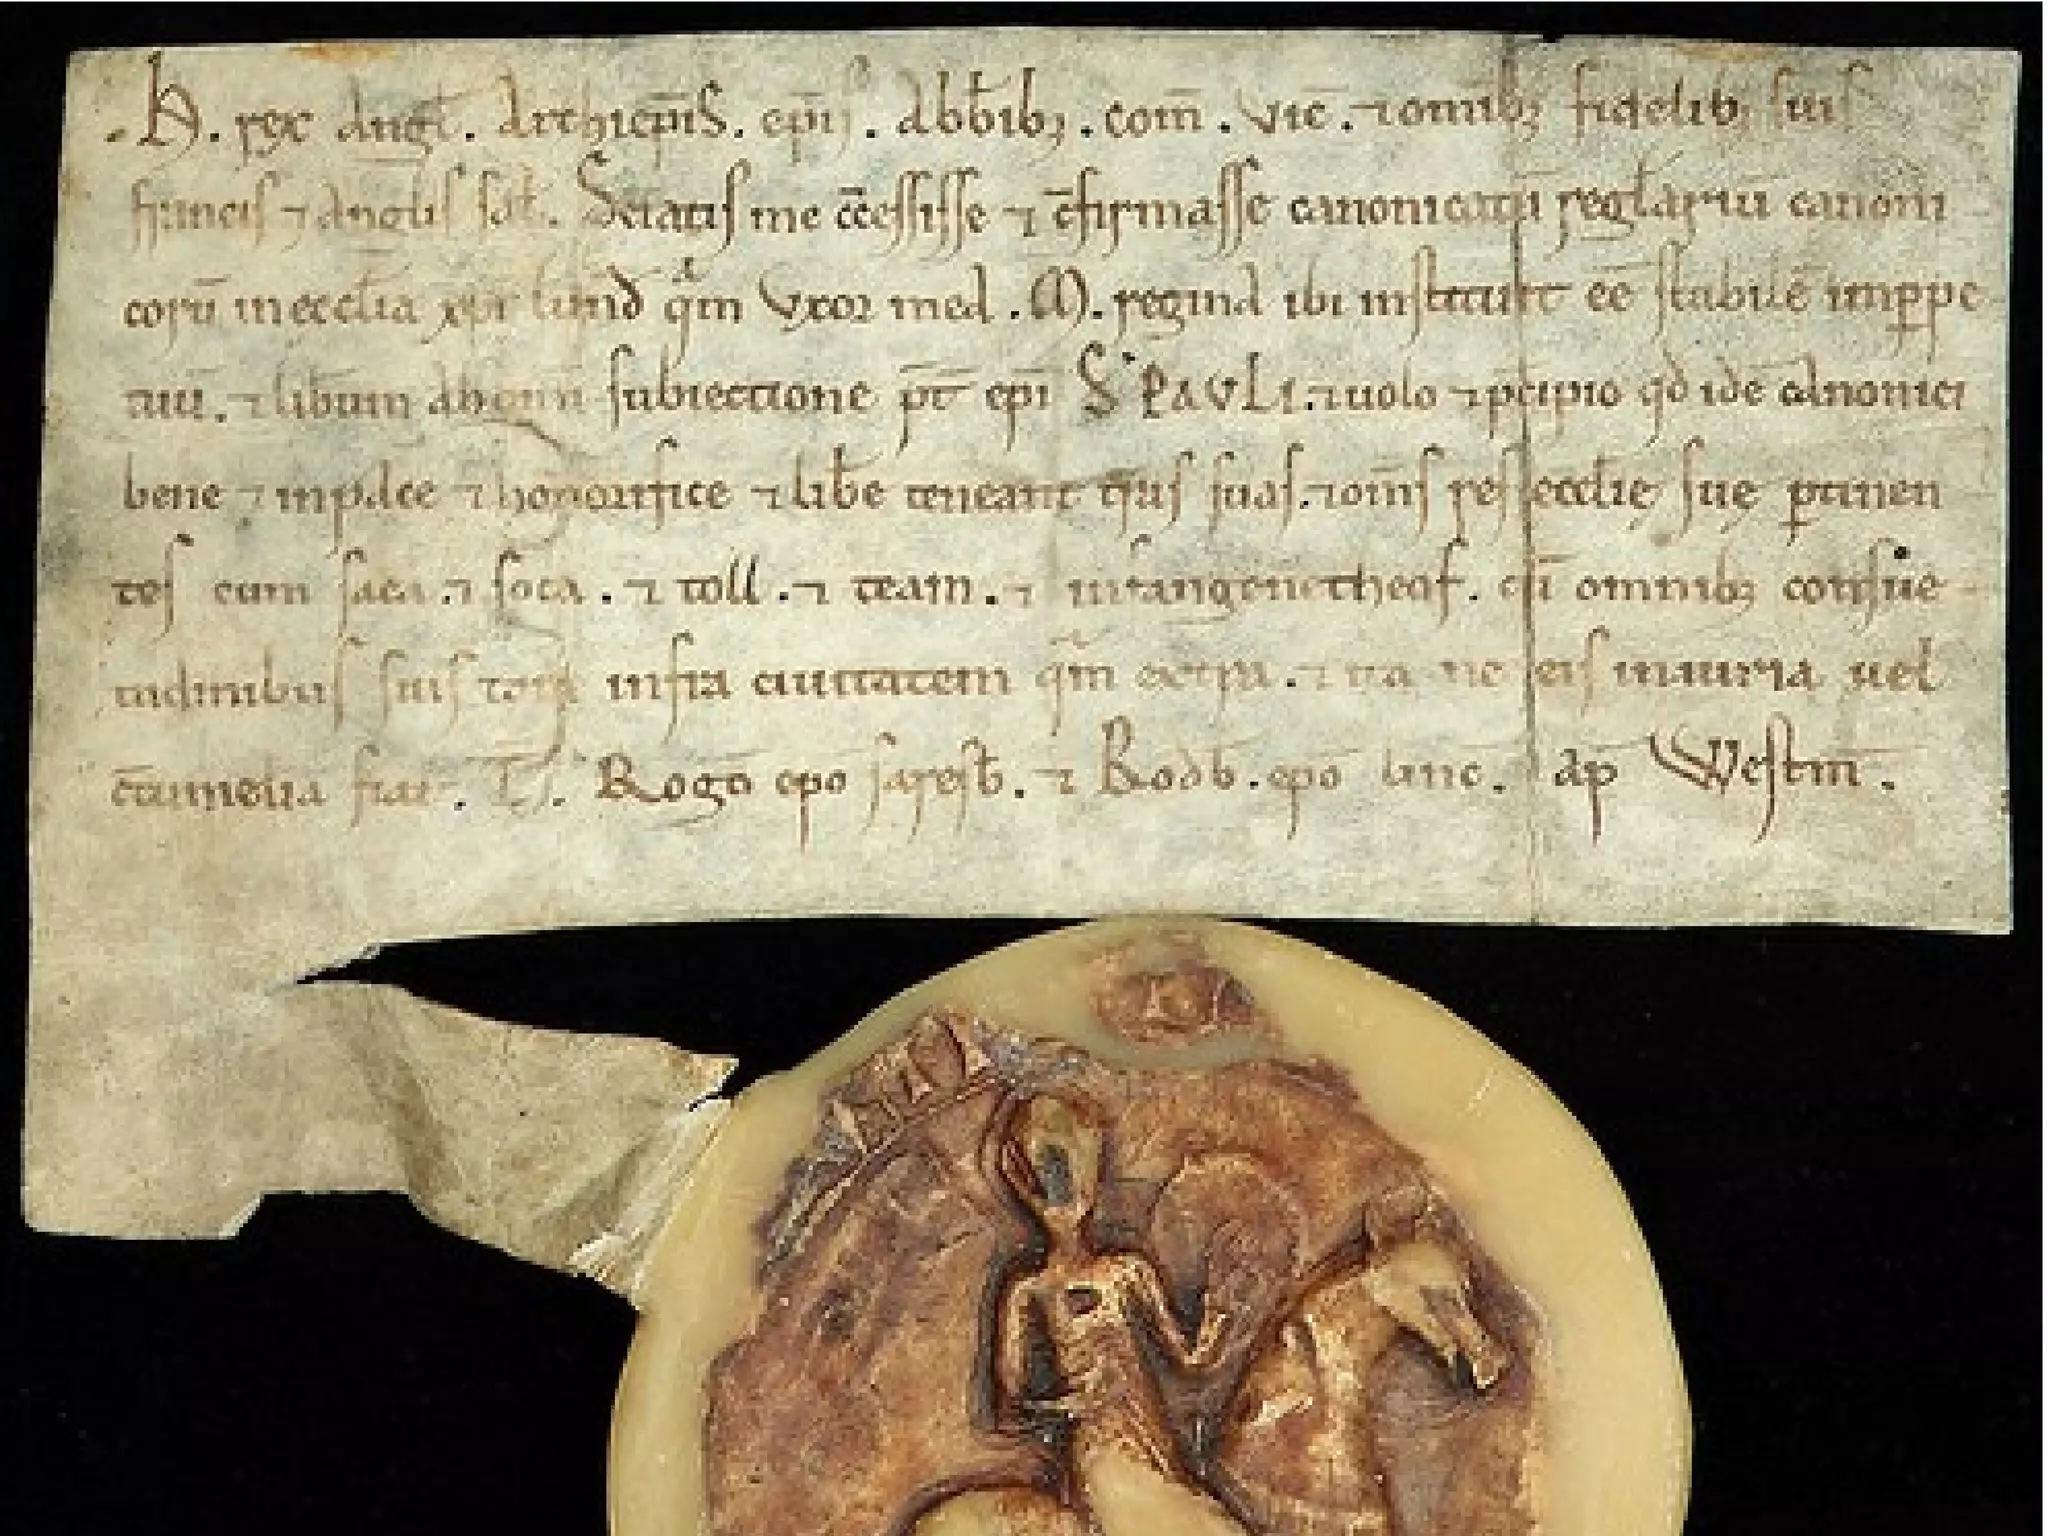 .H. rex Angl̄. Archiep̄is. ep̄is. abb̄ib; . com̄ . vic̄ . ⁊ omīb; fidelib; suis
francis ⁊ anglis sal̄. Sciatis me c̄cessisse ⁊ c̄firmasse canonicatū regl̄ariū canoni
corū in eccl̄ia xp̄i lund̄ qᵃm vxor mea . M. regina ibi instituit eē stabilē inꝑpe
tuū. ⁊ lib̄um ab om̄i subiectione p̄t ep̄i S. PAVLI. ⁊ uolo ⁊ p̄cipio qd̄ idē canonici
bene ⁊ inpace ⁊ honorifice ⁊ lib̄e teneant t̄ras suas. ⁊ om̄s res eccl̄ię suę ꝑtinen
tes cum saca . ⁊ soca . ⁊ toll . ⁊ team . ⁊ infangenetheof . cū omnib; consue
tudinibus suis infra ciuitatem qᵃm extra . ⁊ ita ne eis iniuria uel
c̄tumelia fiat. T̄. Roḡo ep̄o saresb̄. ⁊ Rodb̄. ep̄o linc̄. ap̄ Westm̄.